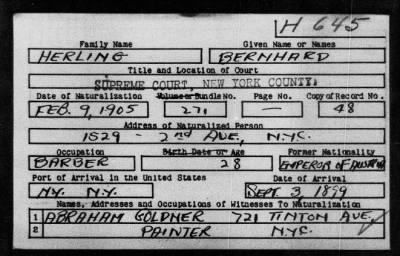 H 645
Family Name Given Name or Names
HERLING BERNHARD
Title and Location of Court
SUPREME COURT, NEW YORK COUNTY.
Date of Naturalization Volume or Bundle No. Page No. Copy of Record No.
FEB. 9, 1905 271 — 48
Address of Naturalized Person
1529 - 2nd AVE, N.Y.C.
Occupation Birth Date or Age Former Nationality
BARBER 28 EMPEROR OF AUSTRIA
Port of Arrival in the United States Date of Arrival
N.Y. N.Y. SEPT. 3, 1899
Names, Addresses and Occupations of Witnesses To Naturalization
1 ABRAHAM GOLDNER 721 TINTON AVE,
2 PAINTER N.Y.C.